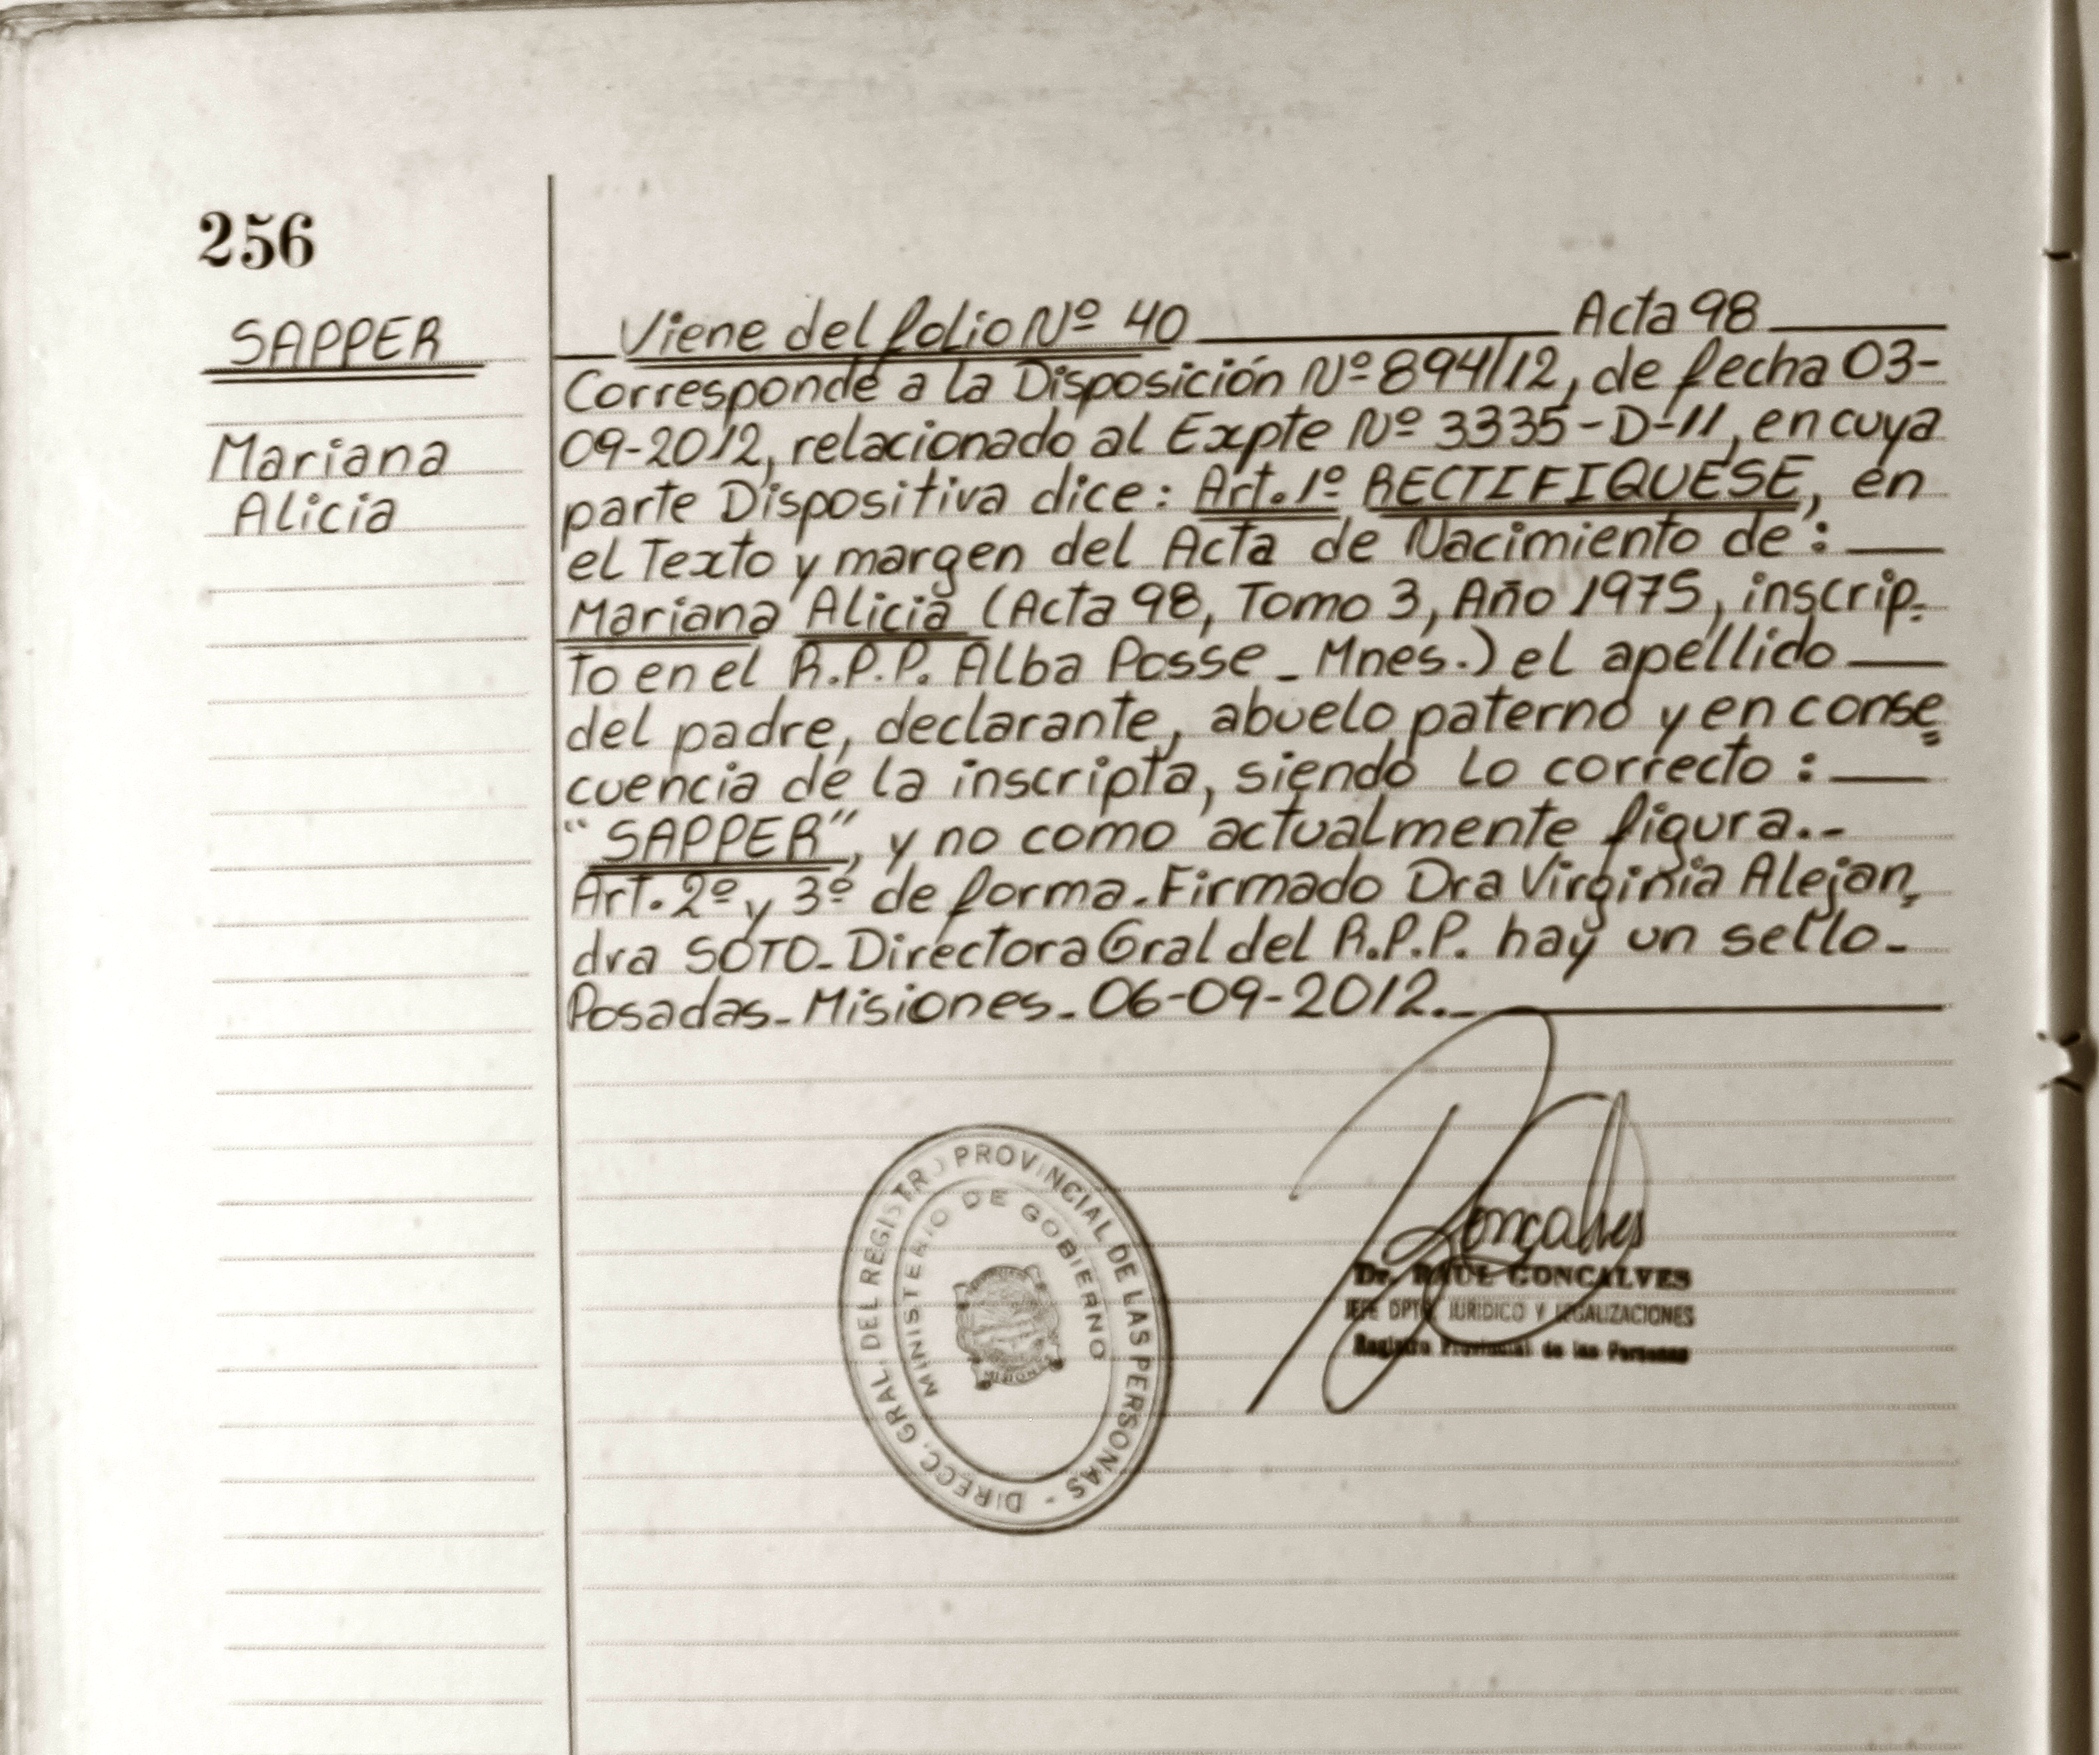 256
SAPPER
Mariana
Alicia
Viene del folio Nº 40 Acta 98
Corresponde a la Disposición Nº 894/12, de fecha 03-
09-2012, relacionado al Expte Nº 3335-D-11, en cuya
parte Dispositiva dice: Art. 1º RECTIFIQUESE, en
el Texto y margen del Acta de Nacimiento de:
Mariana Alicia (Acta 98, Tomo 3, Año 1975, inscrip-
to en el R.P.P. Alba Posse - Mnes.) el apellido
del padre, declarante, abuelo paterno y en conse
cuencia de la inscripta, siendo lo correcto:
"SAPPER", y no como actualmente figura.-
Art. 2º y 3º de forma. Firmado Dra Virginia Alejan
dra SOTO- Directora Gral del R.P.P. hay un sello-
Posadas- Misiones- 06-09-2012.-
DIRECC. GRAL. DEL REGISTRO PROVINCIAL DE LAS PERSONAS -
MINISTERIO DE GOBIERNO
Gonçalves
Dr. RAUL GONCALVES
JEFE DPTO. JURIDICO Y LEGALIZACIONES
Registro Provincial de las Personas